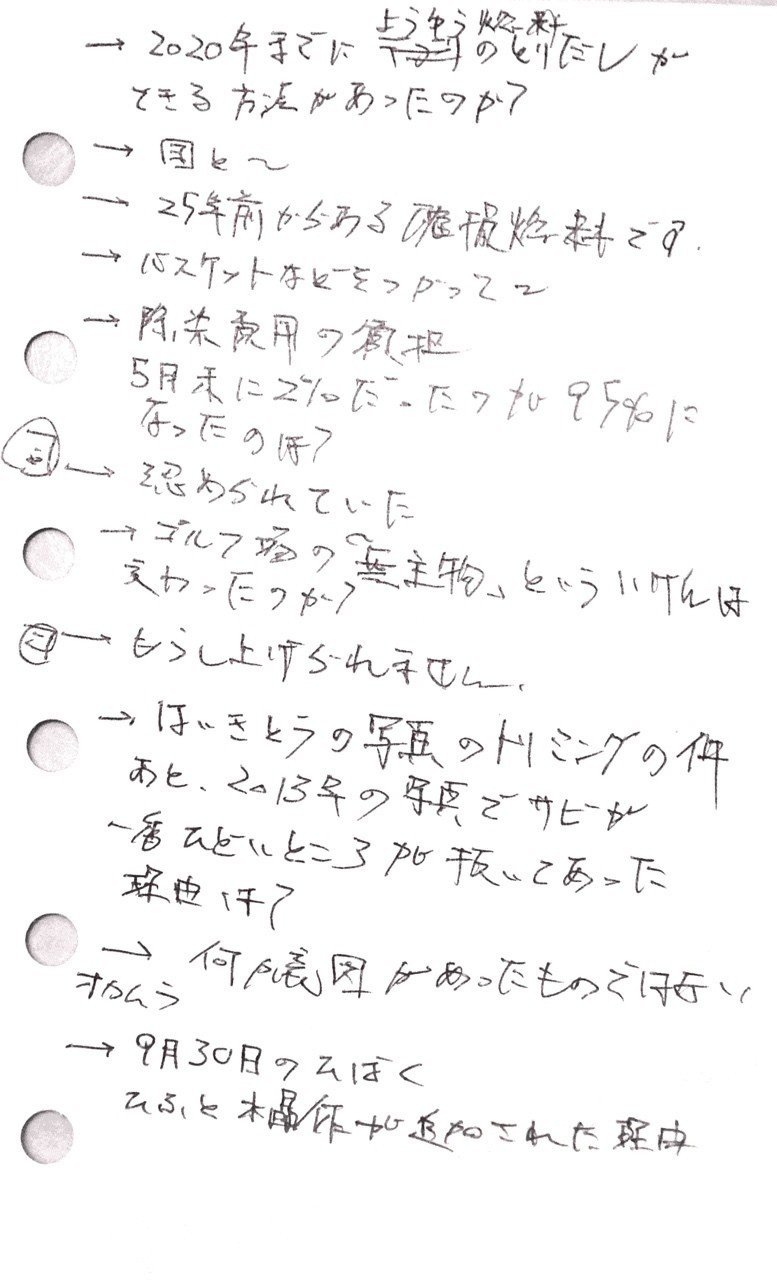 → 2020年までに ようゆう燃料のとりだしが
できる方法があったのか?
→ 国と〜
→ 25年前からある破損燃料です.
→ バスケットなどをつかって〜
→ 除染費用の負担
5月末に2%だったのが95%に
なったのは?
→ 認められていた
→ ゴルフ場の「無主物」といういけんは
変わったのか?
→ もうし上げられません.
→ はいきとうの写真のトリミングの件
あと、2013年の写真でサビが
一番ひどいところが抜いてあった
理由は?
→ 何か意図があったものではない
オカムラ
→ 9月30日のひばく
ひふと水晶体が追加された理由